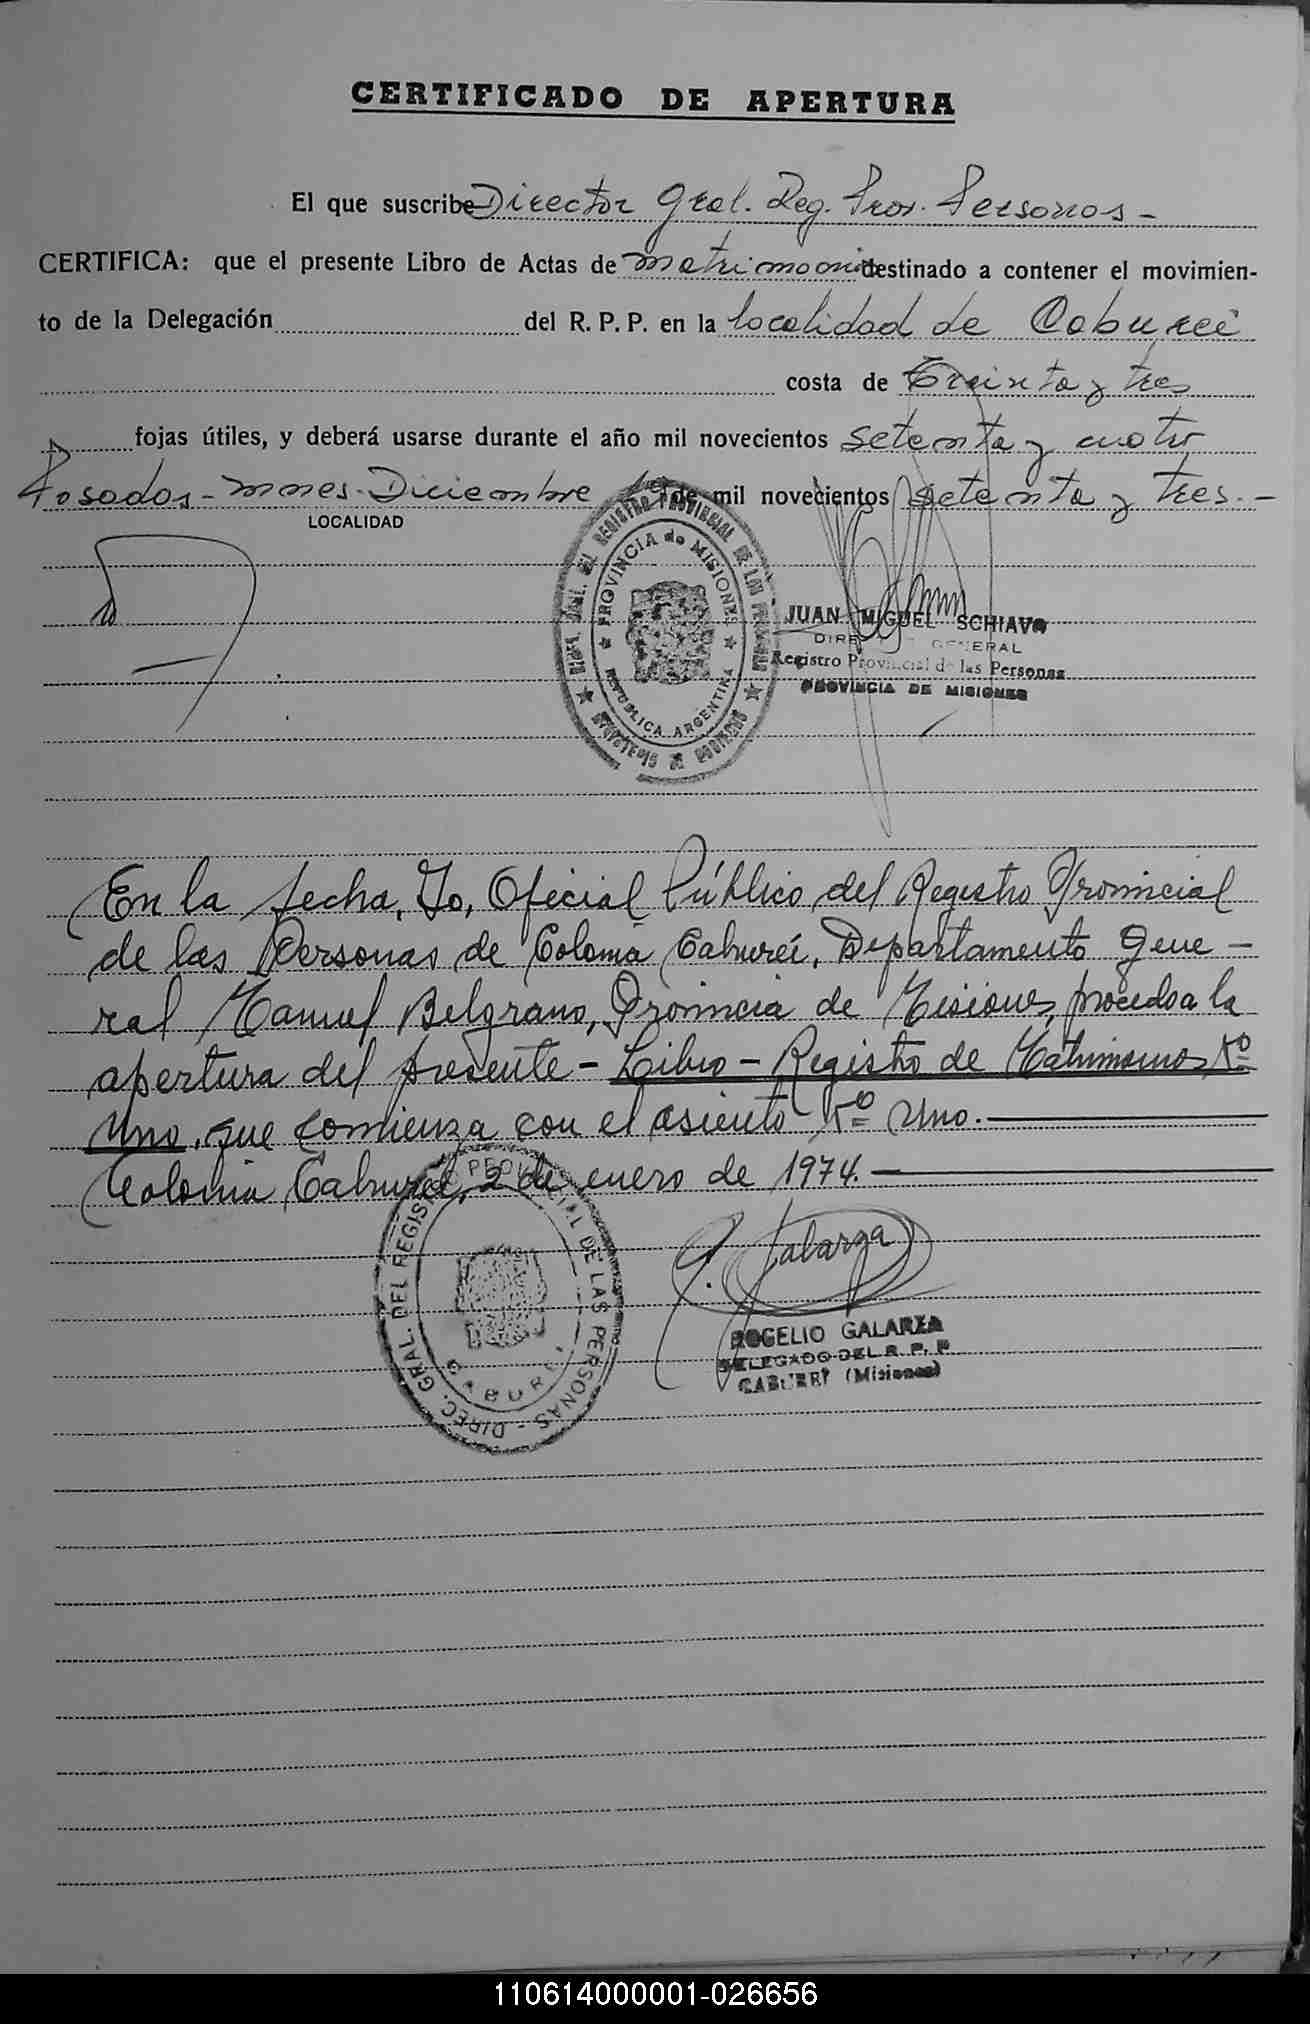 CERTIFICADO DE APERTURA
El que suscribe Director Gral. Reg. Prov. Personas -
CERTIFICA: que el presente Libro de Actas de matrimonio destinado a contener el movimien-
to de la Delegación del R. P. P. en la localidad de Caburei
costa de Treinta y tres
fojas útiles, y deberá usarse durante el año mil novecientos setenta y cuatro
Posadas - Mnes. Diciembre de mil novecientos setenta y tres. -
LOCALIDAD
DIREC. GRAL. DEL REGISTRO PROVINCIAL DE LAS PERSONAS
PROVINCIA de MISIONES
REPUBLICA ARGENTINA
MINISTERIO DE GOBIERNO
JUAN MIGUEL SCHIAVO
DIRECTOR GENERAL
Registro Provincial de las Personas
PROVINCIA DE MISIONES
En la fecha, Yo, Oficial Público del Registro Provincial
de las Personas de Colonia Caburei, Departamento Gene -
ral Manuel Belgrano, Provincia de Misiones, procedo a la
apertura del presente - Libro - Registro de Matrimonios Nº
Uno, que comienza con el asiento Nº Uno.
Colonia Caburei, 2 de enero de 1974.
DIREC. GRAL. DEL REGISTRO PROVINCIAL DE LAS PERSONAS -
CABUREI
R. Galarza
ROGELIO GALARZA
DELEGADO DEL R. P. P
CABUREI (Misiones)
110614000001-026656